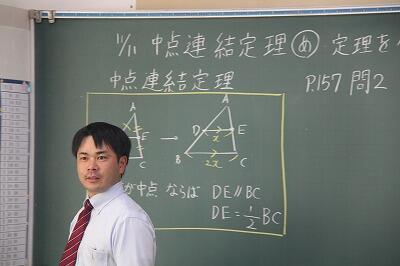 11/11 中点連結定理 め 定理を
中点連結定理 P.157 問2
A A
E → D E
x
C B 2x C
が中点 ならば DE∥BC
DE=1/2BC